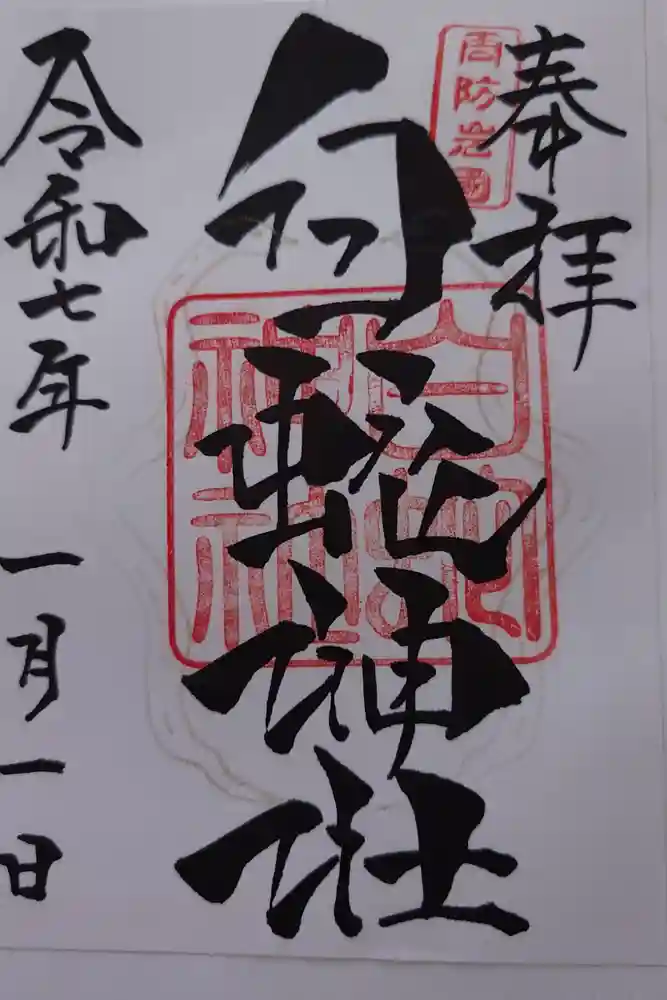 奉拝
周防岩国
白蛇神社
白蛇
神社
令和七年一月一日